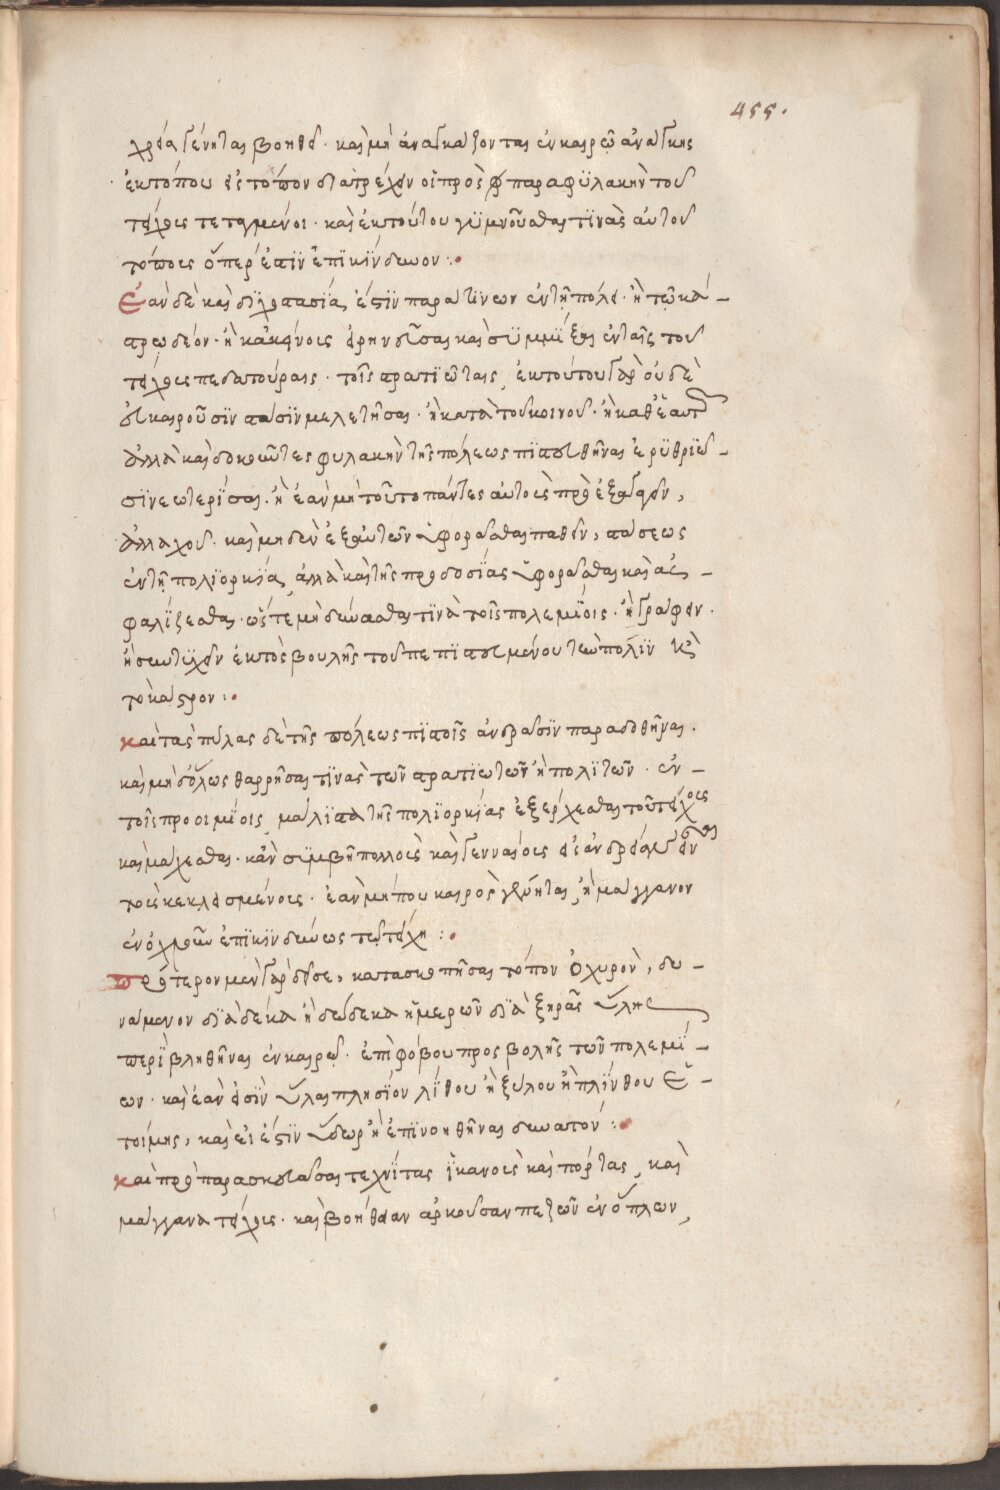 455.
χρεία γένηται βοηθεῖ · καὶ μὴ ἀναγκάζονται ἐν καιρῷ ἀνάγκης
ἐκ τόπου εἰς τόπον διατρέχειν οἱ πρὸς παραφυλακὴν τοῦ
τείχους τεταγμένοι · καὶ ἐκ τούτου γυμνοῦσθαι τινὰς αὐτοῦ
τόπους ὅπερ ἐστὶν ἐπικίνδυνον :·
Ἐὰν δὲ καὶ διχοστασία ἐστὶν παρά τινων ἐν τῇ πόλει · ἢ τῷ κά-
στρῳ δέον · ἢ κἀκείνοις εἰρηνεῦσαι καὶ συμμίξαι ἐν ταῖς τοῦ
τείχους πεδατούραις · τοῖς στρατιώταις, ἐκ τούτου γὰρ οὐδὲ
εὐκαιροῦσιν στάσιν μελετῆσαι · ἢ κατὰ τοῦ κοινοῦ · ἢ καθ' ἑαυτῶν
ἀλλὰ καὶ δοκοῦντες φυλακὴν τῆς πόλεως πιστευθῆναι ἐρυθριῶ-
σι νεωτερίσαι · ἢ ἐὰν μὴ τοῦτο πάντες αὐτοὺς προεξάγειν,
ἀλλαχοῦ · καὶ μηδὲν ἐξ αὐτῶν ὑφορᾶσθαι παθεῖν, στάσεως
ἐν τῇ πολιορκίᾳ, ἀλλὰ καὶ τῆς προδοσίας ὑφορᾶσθαι καὶ ἀσ-
φαλίζεσθαι · ὥστε μὴ δύνασθαι τινὰ τοῖς πολεμίοις · ἢ γράφειν ·
ἢ συντυχεῖν ἐκτὸς βουλῆς τοῦ πεπιστευμένου τὴν πόλιν κ(αὶ)
τὸ κάστρον :·
Καὶ τὰς πύλας δὲ τῆς πόλεως πιστοῖς ἀνδράσιν παραδοθῆναι ·
καὶ μὴ ὅλως θαρρῆσαι τινὰς τῶν στρατιωτῶν ἢ πολιτῶν · ἐν
τοῖς προοιμίοις, μάλιστα τῆς πολιορκίας ἐξέρχεσθαι τοῦ τείχους
καὶ μάχεσθαι · κἂν συμβῇ πολλοὺς καὶ γενναίους εἰς ἀνδρείαν εἶναι
τοὺς κεκλεισμένους · ἐὰν μή που καιρὸς γένηται, ἢ μάγγανον
ἐνοχλοῦν ἐπικινδύνως τῷ τείχη :·
Πρότερον μὲν γὰρ δεῖ σε, κατασκοπῆσαι τόπον ὀχυρὸν, δυ-
νάμενον διὰ δέκα ἢ δώδεκα ἡμερῶν διὰ ξηρᾶς ὕλης
περιβληθῆναι ἐν καιρῷ · ἐπὶ φόβου προσβολῆς τῶν πολεμί-
ων · καὶ ἐὰν εἰσὶν ὗλαι πλησίον λίθου ἢ ξύλου ἢ πλίνθου ἑ-
τοίμης, καὶ εἰ ἐστὶν ὕδωρ ἢ ἐπινοηθῆναι δυνατόν :·
Καὶ προπαρασκευάσαι τεχνίτας ἱκανοὺς καὶ πόρτας, καὶ
μάγγανα τείχους · καὶ βοήθειαν ἀρκοῦσαν πεζῶν ἐνόπλων,